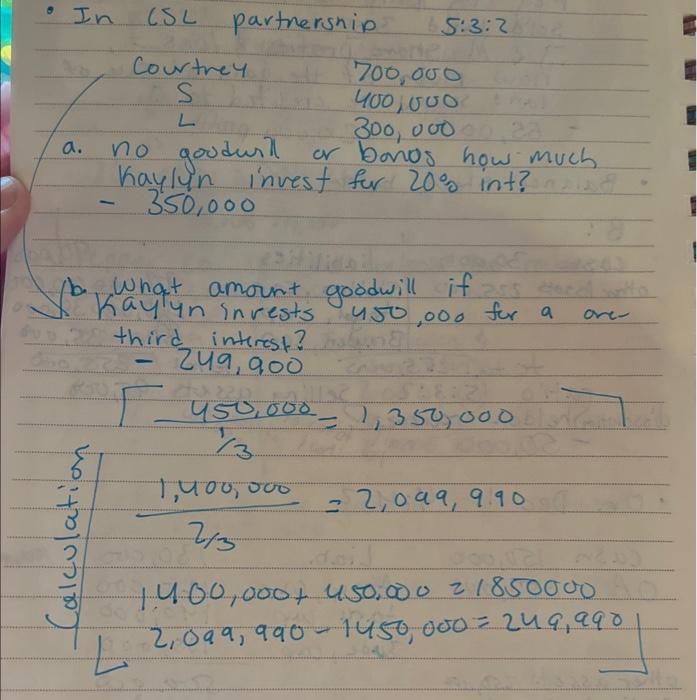 • In CSL partnership 5:3:2
Courtney 700,000
S 400,000
L 300,000
a. no goodwill or bonos how much
Kaylyn invest for 20% int?
- 350,000
b. what amount goodwill if
Kaylyn invests 450,000 for a one-
third interest?
- 249,900
450,000 / 1/3 = 1,350,000
Calculation
1,400,000 / 2/3 = 2,099,990
1,400,000 + 450,000 = 1850000
2,099,990 - 1450,000 = 249,990